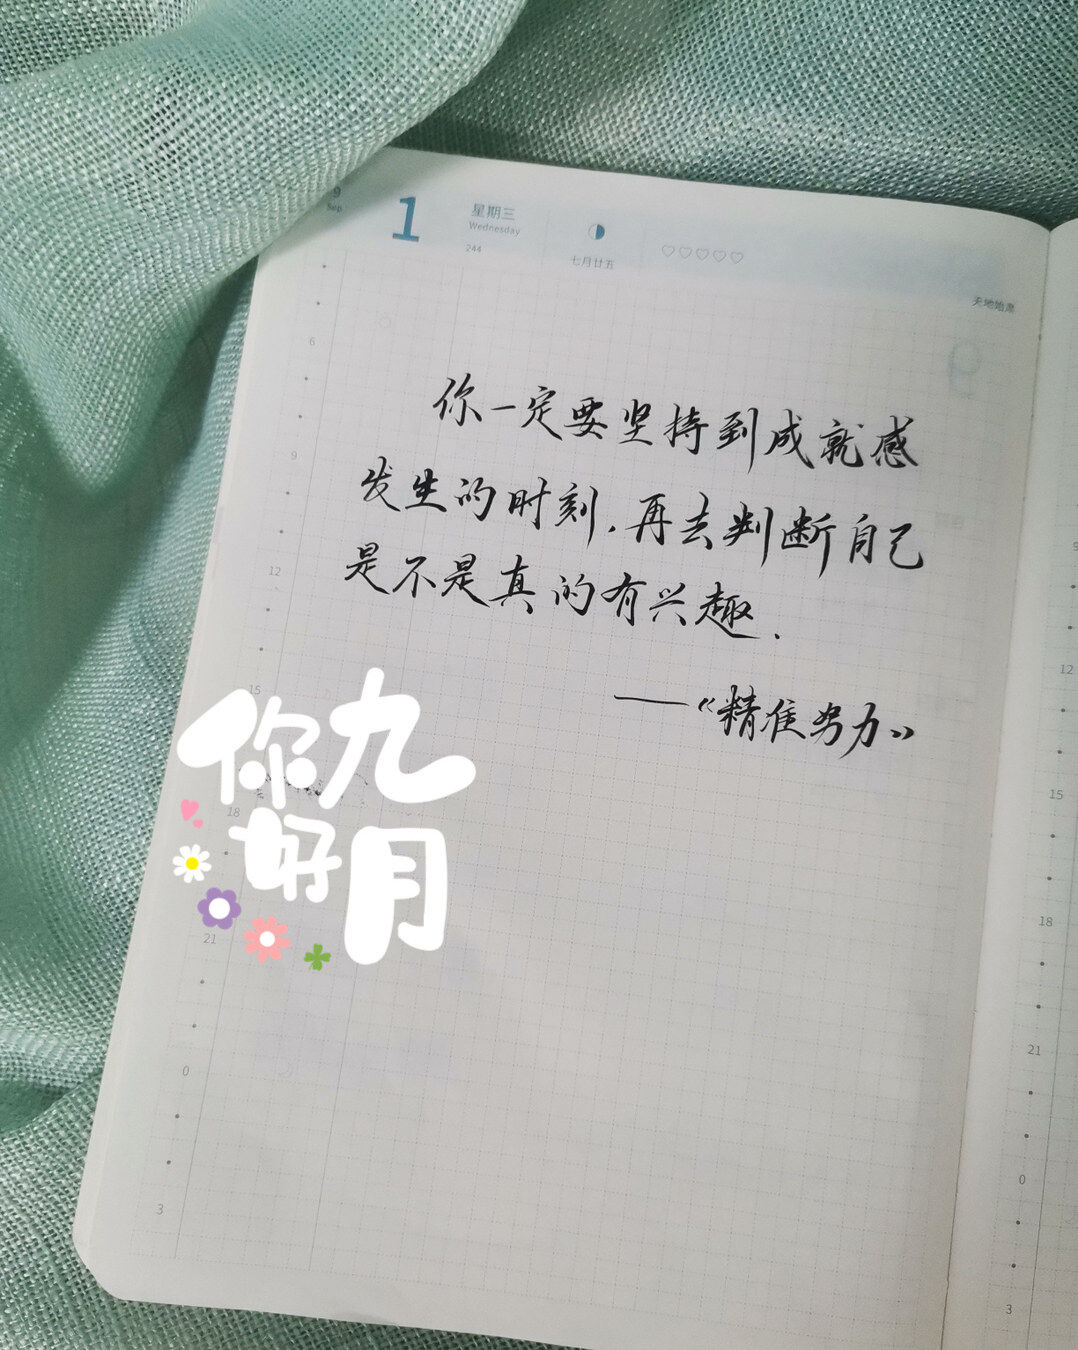 9
Sep
1
星期三
Wednesday
244
七月廿五
天地始肃
你一定要坚持到成就感
发生的时刻.再去判断自己
是不是真的有兴趣.
——《精准努力》
你好
九月
6
9
12
15
18
21
0
3
9
12
15
18
21
0
3